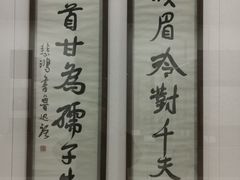 眉冷對千夫
首甘為孺子牛
悲鴻書魯迅